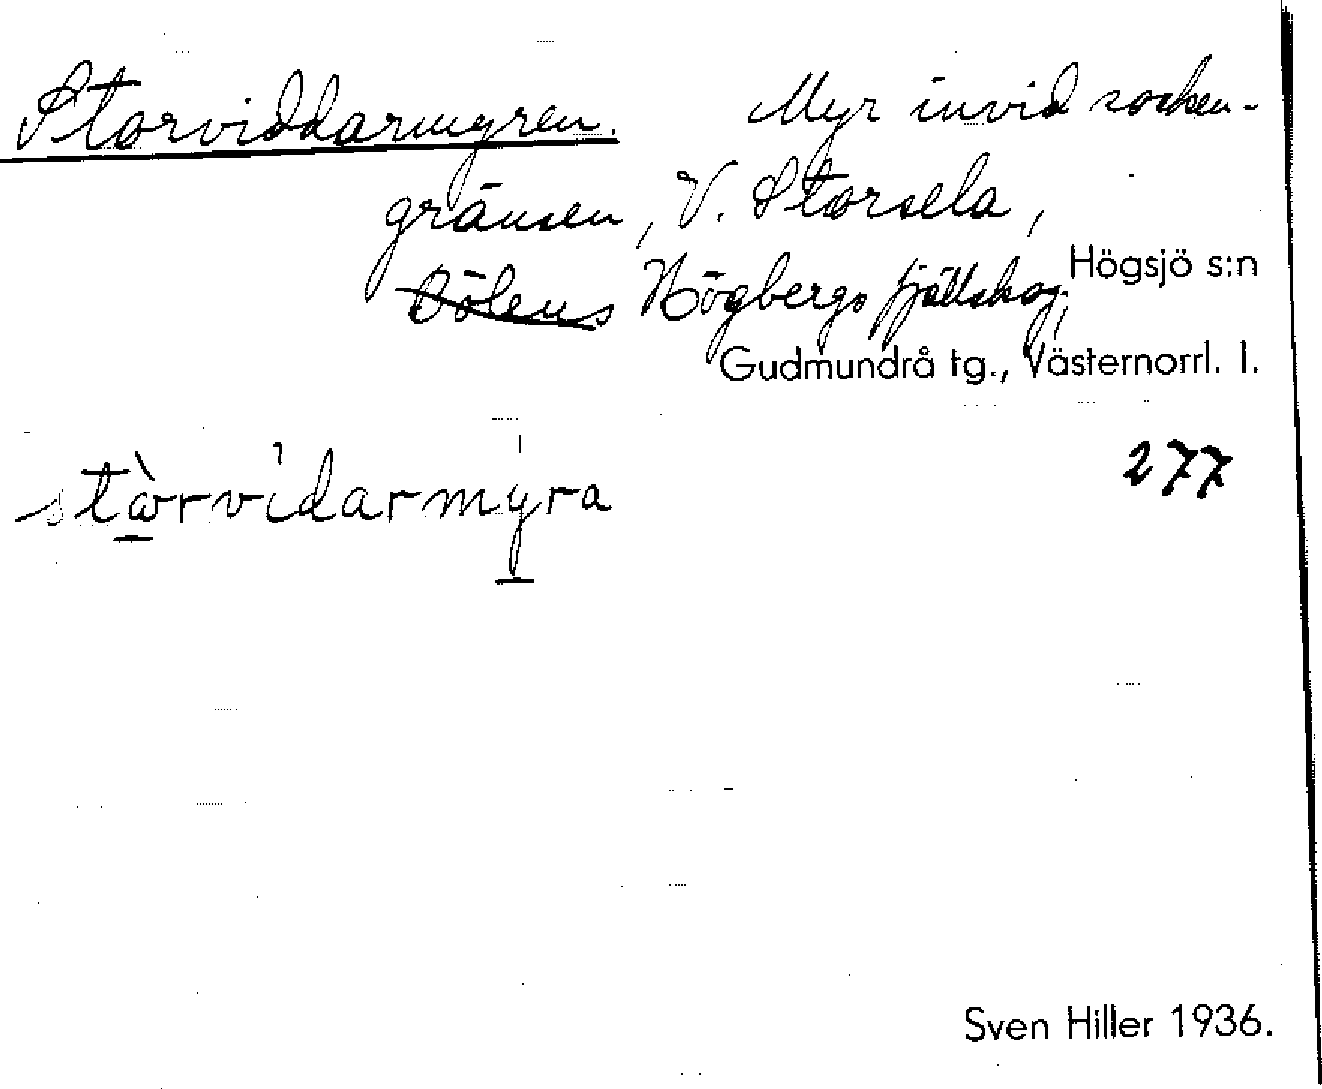 Storviddarmyren. Myr invid socken-
gränsen, V. Storsela,
Bölens Högbergs fjällskog, Högsjö s:n
Gudmundrå tg., Västernorrl. l.
stòrvìdarmyra 277
Sven Hiller 1936.